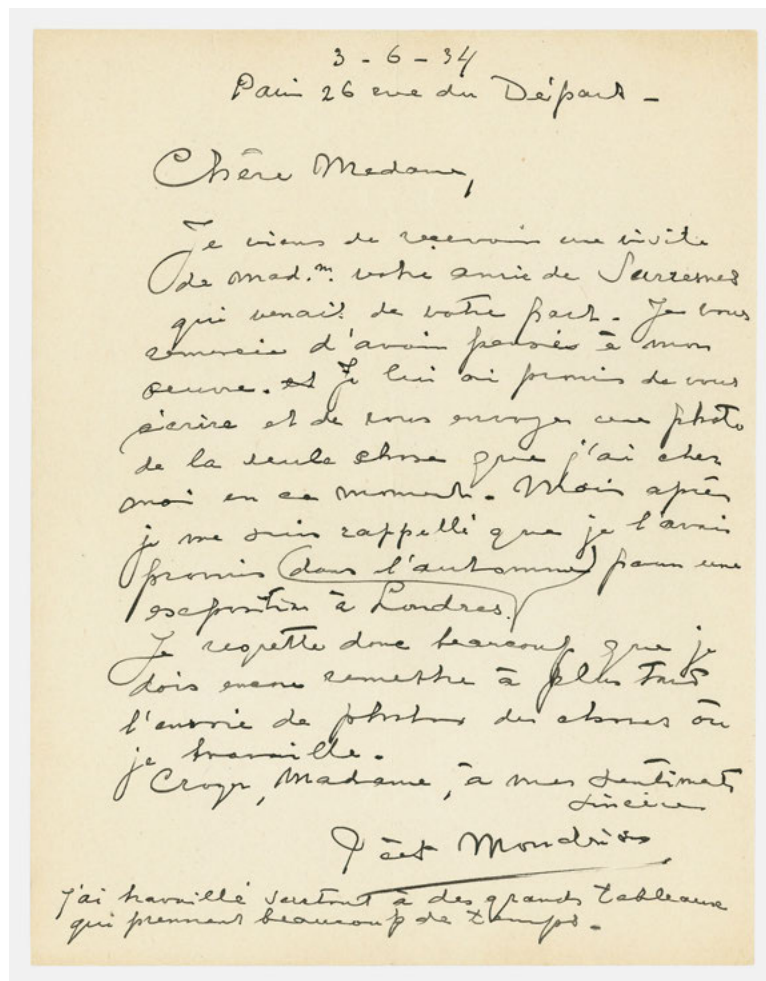 3 - 6 - 34
Paris 26 rue du Départ -
Chère Madame,
Je viens de recevoir une visite
de mad.m. votre amie de Suresnes
qui venait de votre part. Je vous
remercie d'avoir pensée à mon
oeuvre. et Je lui ai promis de vous
écrire et de vous envoyer une photo
de la seule chose que j'ai chez
moi en ce moment. Mais après
je me suis rappellé que je l'avais
promis (dans l'automne) pour une
exposition à Londres.
Je regrette donc beaucoup que je
dois encore remettre à plus tard
l'envoie de photos des choses où
je travaille.
Croyez, Madame, à mes sentiments
sincères
Piet Mondrian
j'ai travaillé surtout à des grands tableaux
qui prennent beaucoup de temps.